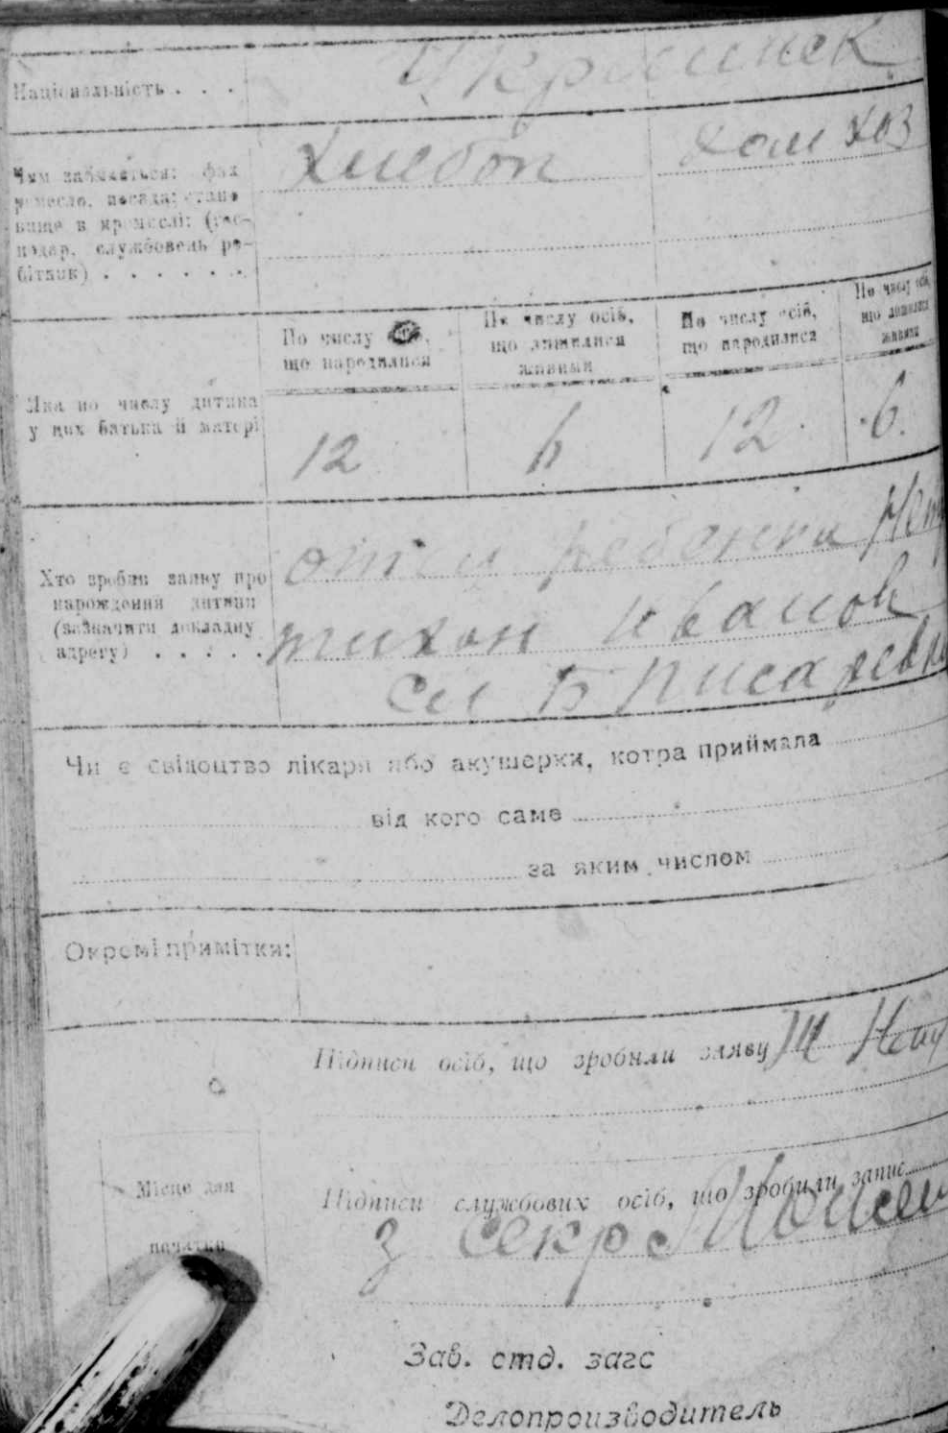 Національність . . .
Украинск
Чим займається: фах
ремесло, посада; стано-
вище в промислі: (гос-
подар, службовець ро-
бітник) . . . . . . .
Хлебоп
Дом хоз
По числу
що народилися
По числу осіб,
що лишилися
живими
По числу осіб,
що народилися
По числу осіб,
що лишилися
живими
Яка по числу дитина
у цих батька й матері
12
6
12
6.
Хто зробив заяву про
народження дитини
(зазначити докладну
адресу) . . . . .
отец ребенка
тихон Иванов
сл Б Писаревка
Чи є свідоцтво лікаря або акушерки, котра приймала
від кого саме
за яким числом
Окремі примітки:
Підписи осіб, що зробили заяву
Місце для
печатки
Підписи службових осіб, що зробили запис
З Секр
Зав. стд. загс
Делопроизводитель